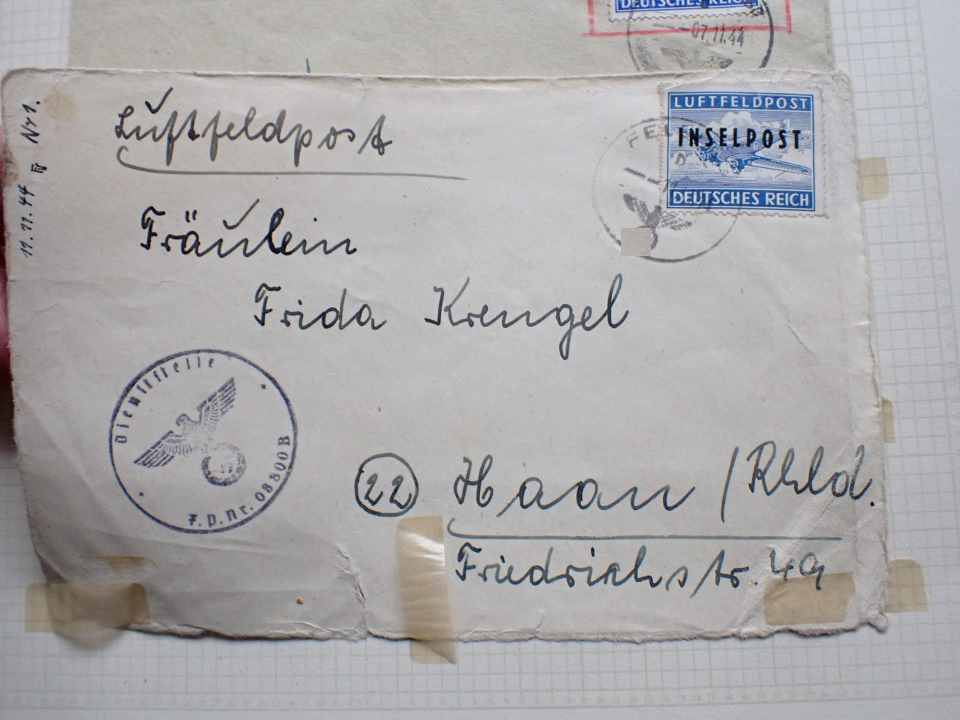 DEUTSCHES REICH
07.11.44
11.11.44 III Nr 1.
Luftfeldpost
LUFTFELDPOST
INSELPOST
DEUTSCHES REICH
FEL
Fräulein
Frida Krengel
Dienststelle
F.P.Nr. 08800B
22 Haan / Rhld.
Friedrichstr. 49